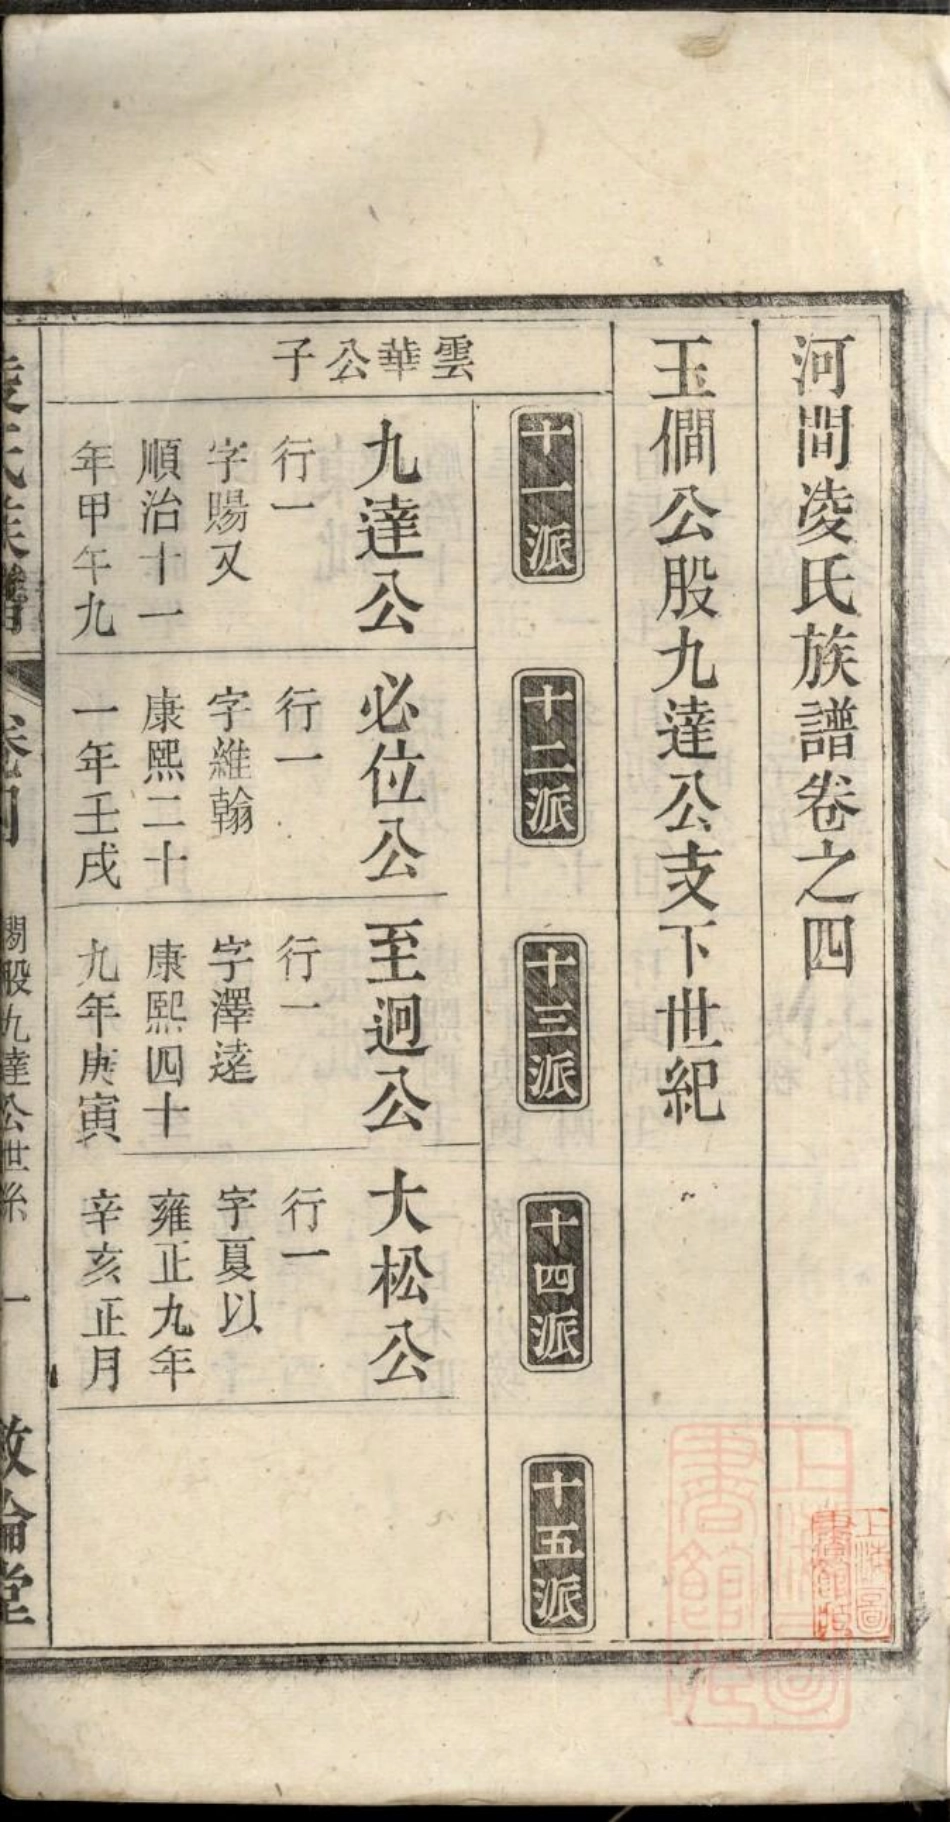 河間凌氏族譜卷之四
玉僩公股九達公支下世紀
十一派
十二派
十三派
十四派
十五派
雲華公子
九達公
行一
字賜又
順治十一
年甲午九
必位公
行一
字維翰
康熙二十
一年壬戌
至迥公
行一
字澤遠
康熙四十
九年庚寅
大松公
行一
字夏以
雍正九年
辛亥正月
凌氏族譜
卷四
僩股九達公世系
一
敦倫堂
上海圖書館藏
上海圖書館藏